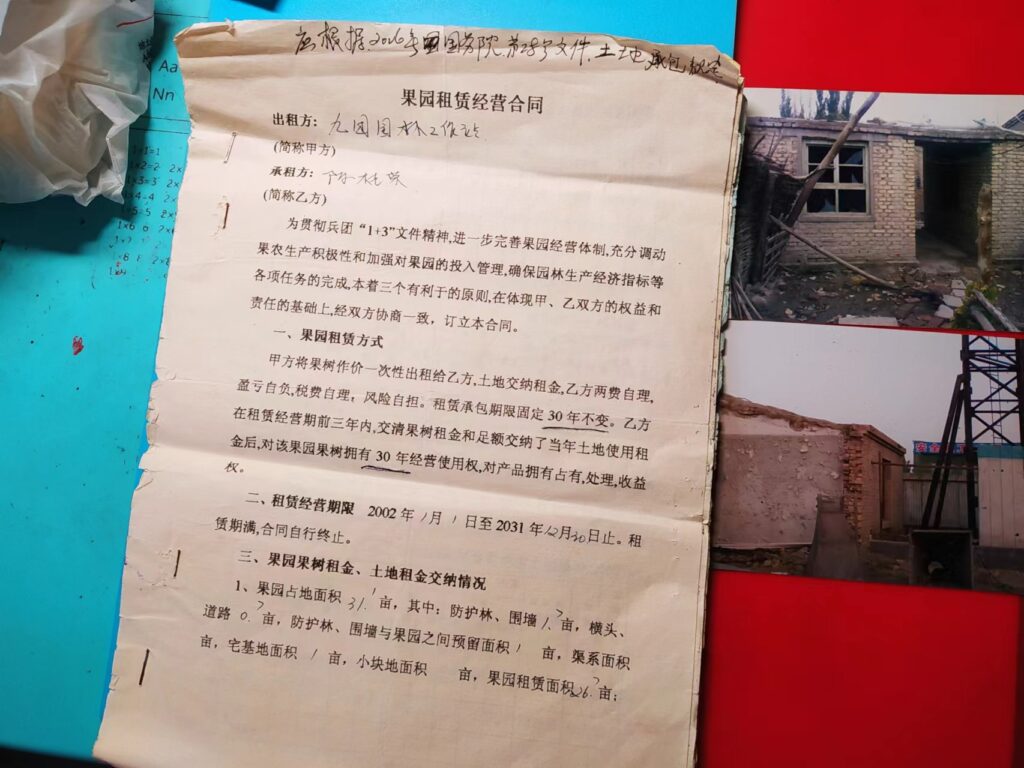 应根据2016年国务院第 号文件.土地承包规定
果园租赁经营合同
出租方：九团园林工作站
(简称甲方)
承租方：
(简称乙方)
为贯彻兵团“1+3”文件精神,进一步完善果园经营体制,充分调动
果农生产积极性和加强对果园的投入管理,确保园林生产经济指标等
各项任务的完成,本着三个有利于的原则,在体现甲、乙双方的权益和
责任的基础上,经双方协商一致，订立本合同。
一、果园租赁方式
甲方将果树作价一次性出租给乙方,土地交纳租金,乙方两费自理,
盈亏自负,税费自理，风险自担。租赁承包期限固定 30 年不变。乙方
在租赁经营期前三年内,交清果树租金和足额交纳了当年土地使用租
金后,对该果园果树拥有 30 年经营使用权,对产品拥有占有,处理,收益
权。
二、租赁经营期限 2002 年 1 月 1 日至 2031 年 12 月 30 日止。租
赁期满,合同自行终止。
三、果园果树租金、土地租金交纳情况
1、果园占地面积 31.1 亩，其中：防护林、围墙 1.7 亩，横头、
道路 0.7 亩，防护林、围墙与果园之间预留面积 1 亩，渠系面积
亩，宅基地面积 1 亩，小块地面积 亩，果园租赁面积 26.7 亩；
Aa
Nn